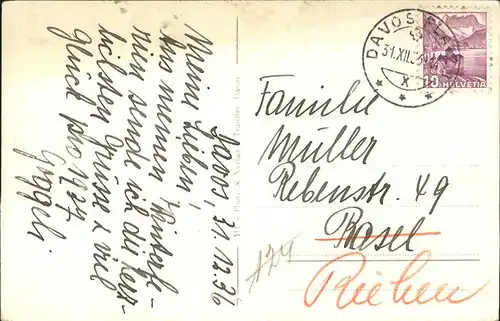 Davos, 31.12.36
Meine Lieben,
Aus meinen Winterfe-
rien sende ich die herz-
lichsten Grüsse & viel
Glück pro 1937
Göggeli.
DAVOS-PLATZ
31.XII.36
X
10 HELVETIA
Familie
Müller
Rebenstr. 49
Basel
Riehen